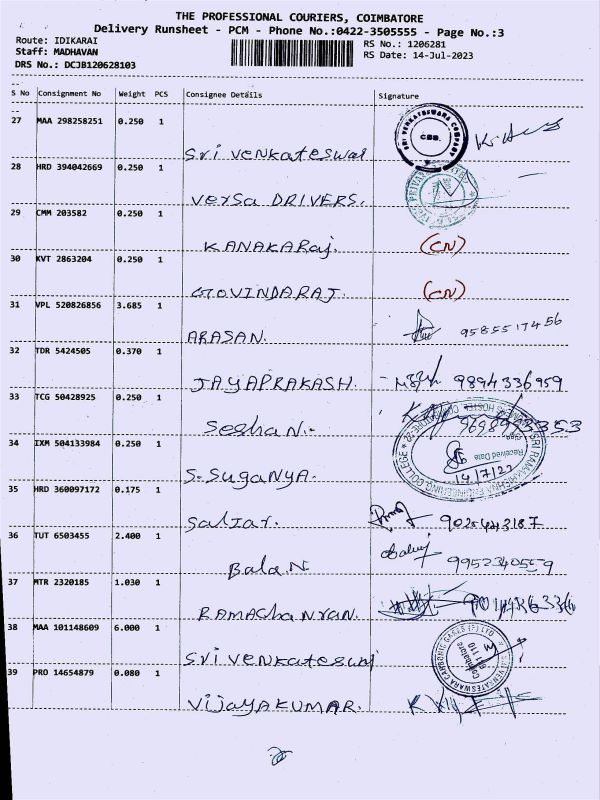 THE PROFESSIONAL COURIERS, COIMBATORE
Delivery Runsheet - PCM - Phone No.:0422-3505555 - Page No.:3
Route: IDIKARAI
RS No.: 1206281
Staff: MADHAVAN
RS Date: 14-Jul-2023
DRS No.: DCJB120628103
S No Consignment No Weight PCS Consignee Details Signature
27 MAA 298258251 0.250 1
Sri Venkateswar
SRI VENKATESWARA COMPANY
CBE.
28 HRD 394042669 0.250 1
Versa DRIVERS.
29 CMM 203582 0.250 1
KANAKARaj. (CN)
30 KVT 2863204 0.250 1
GOVINDARAJ. (CN)
31 VPL 520826856 3.685 1
ARASAN. 9585517456
32 TDR 5424505 0.370 1
JAYAPRAKASH. 9894336959
33 TCG 50428925 0.250 1
Seshan.
34 IXM 504133984 0.250 1
S. Suganya.
SRI RAMAKRISHNA ENGINEERING COLLEGE
Received Date
14/7/23
35 HRD 360097172 0.175 1
36 TUT 6503455 2.400 1
Bala N
37 MTR 2320185 1.030 1
38 MAA 101148609 6.000 1
Sri Venkateswar
39 PRO 14654879 0.080 1
VijayAKUMAR.